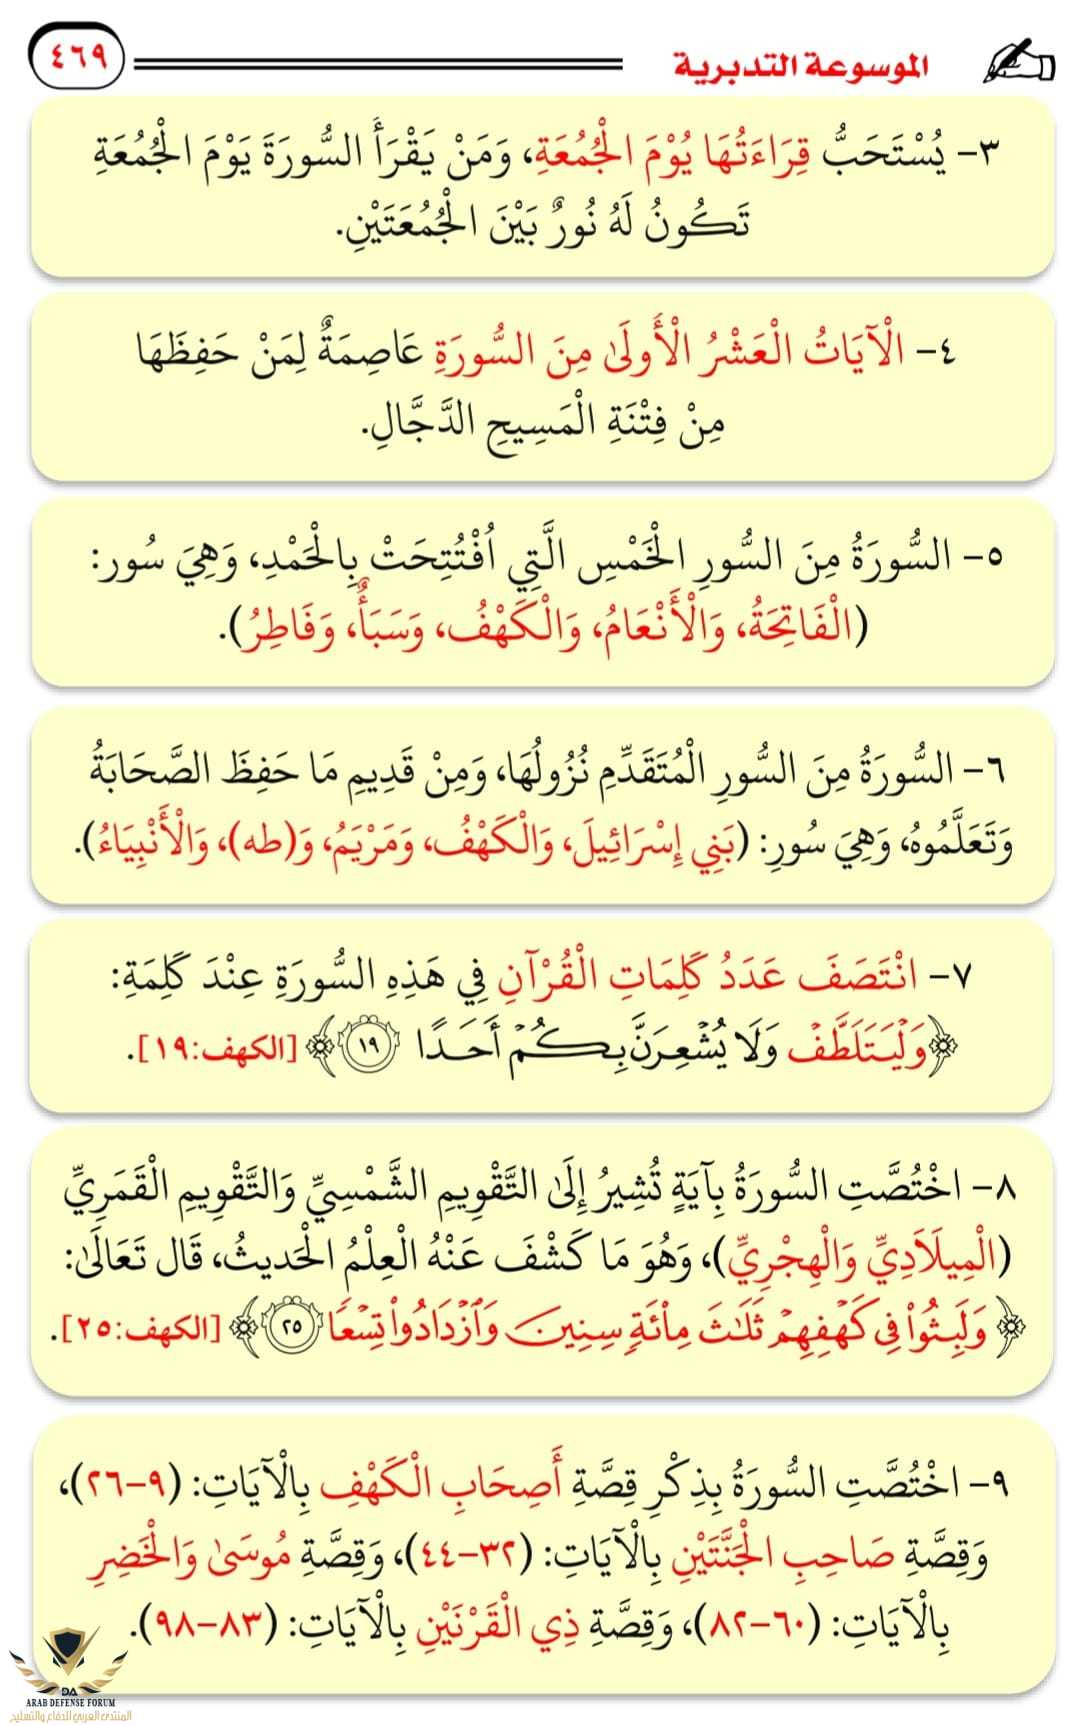 الموسوعة التدبرية
٤٦٩
٣- يُسْتَحَبُّ قِرَاءَتُهَا يُوْمَ الْجُمُعَةِ، وَمَنْ يَقْرَأَ السُّورَةَ يَوْمَ الْجُمُعَةِ
تَكُونُ لَهُ نُورٌ بَيْنَ الْجُمُعَتَيْنِ.
٤- الْآيَاتُ الْعَشْرُ الْأَولَى مِنَ السُّورَةِ عَاصِمَةٌ لِمَنْ حَفِظَهَا
مِنْ فِتْنَةِ الْمَسِيحِ الدَّجَّالِ.
٥- السُّورَةُ مِنَ السُّورِ الْخَمْسِ الَّتِي اُفْتُتِحَتْ بِالْحَمْدِ، وَهِيَ سُور:
(الْفَاتِحَةُ، وَالْأَنْعَامُ، وَالْكَهْفُ، وَسَبَأٌ، وَفَاطِرُ).
٦- السُّورَةُ مِنَ السُّورِ الْمُتَقَدِّمِ نُزُولُهَا، وَمِنْ قَدِيمِ مَا حَفِظَ الصَّحَابَةُ
وَتَعَلَّمُوهُ، وَهِيَ سُورِ: (بَنِي إِسْرَائِيلَ، وَالْكَهْفُ، وَمَرْيَمُ، وَ(طه)، وَالْأَنْبِيَاءُ).
٧- انْتَصَفَ عَدَدُ كَلِمَاتِ الْقُرْآنِ فِي هَذِهِ السُّورَةِ عِنْدَ كَلِمَةِ:
﴿وَلْيَتَلَطَّفْ وَلَا يُشْعِرَنَّ بِكُمْ أَحَدًا ١٩﴾ [الكهف:١٩].
٨- اخْتُصَّتِ السُّورَةُ بِآيَةٍ تُشِيرُ إِلَى التَّقْوِيمِ الشَّمْسِيِّ وَالتَّقْوِيمِ الْقَمَرِيِّ
(الْمِيلَادِيِّ وَالْهِجْرِيِّ)، وَهُوَ مَا كَشْفَ عَنْهُ الْعِلْمُ الْحَدِيثُ، قَال تَعَالَى:
﴿وَلَبِثُوا۟ فِى كَهْفِهِمْ ثَلَـٰثَ مِا۟ئَةٍۢ سِنِينَ وَٱزْدَادُوا۟ تِسْعًا ٢٥﴾ [الكهف:٢٥].
٩- اخْتُصَّتِ السُّورَةُ بِذِكْرِ قِصَّةِ أَصِحَابِ الْكَهْفِ بِالْآيَاتِ: (٩-٢٦)،
وَقِصَّةِ صَاحِبِ الْجَنَّتَيْنِ بِالْآيَاتِ: (٣٢-٤٤)، وَقِصَّةِ مُوسَى وَالْخَضِرِ
بِالْآيَاتِ: (٦٠-٨٢)، وَقِصَّةِ ذِي الْقَرْنَيْنِ بِالْآيَاتِ: (٨٣-٩٨).
DA
ARAB DEFENSE FORUM
المنتدى العربي للدفاع والتسليح